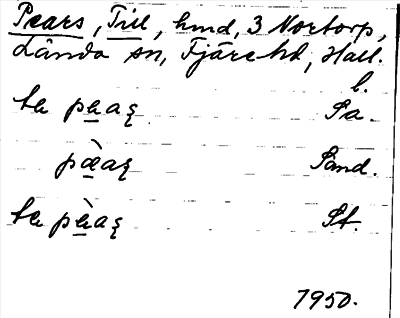 Pears, Till, hmd, 3 Nortorp,
Lända sn, Fjäre hd, Hall.
l.
te pe̲aʂ Sa.
pæ̲̀aʂ Sand.
te pè̲aʂ St.
1950.